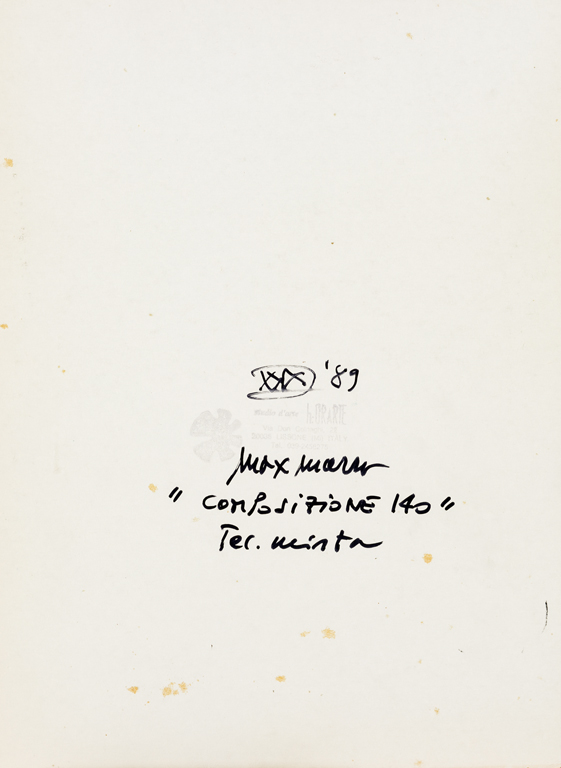 XXX '89
studio d'arte
Max Marra
" COMPOSIZIONE 140 "
Tec. mista